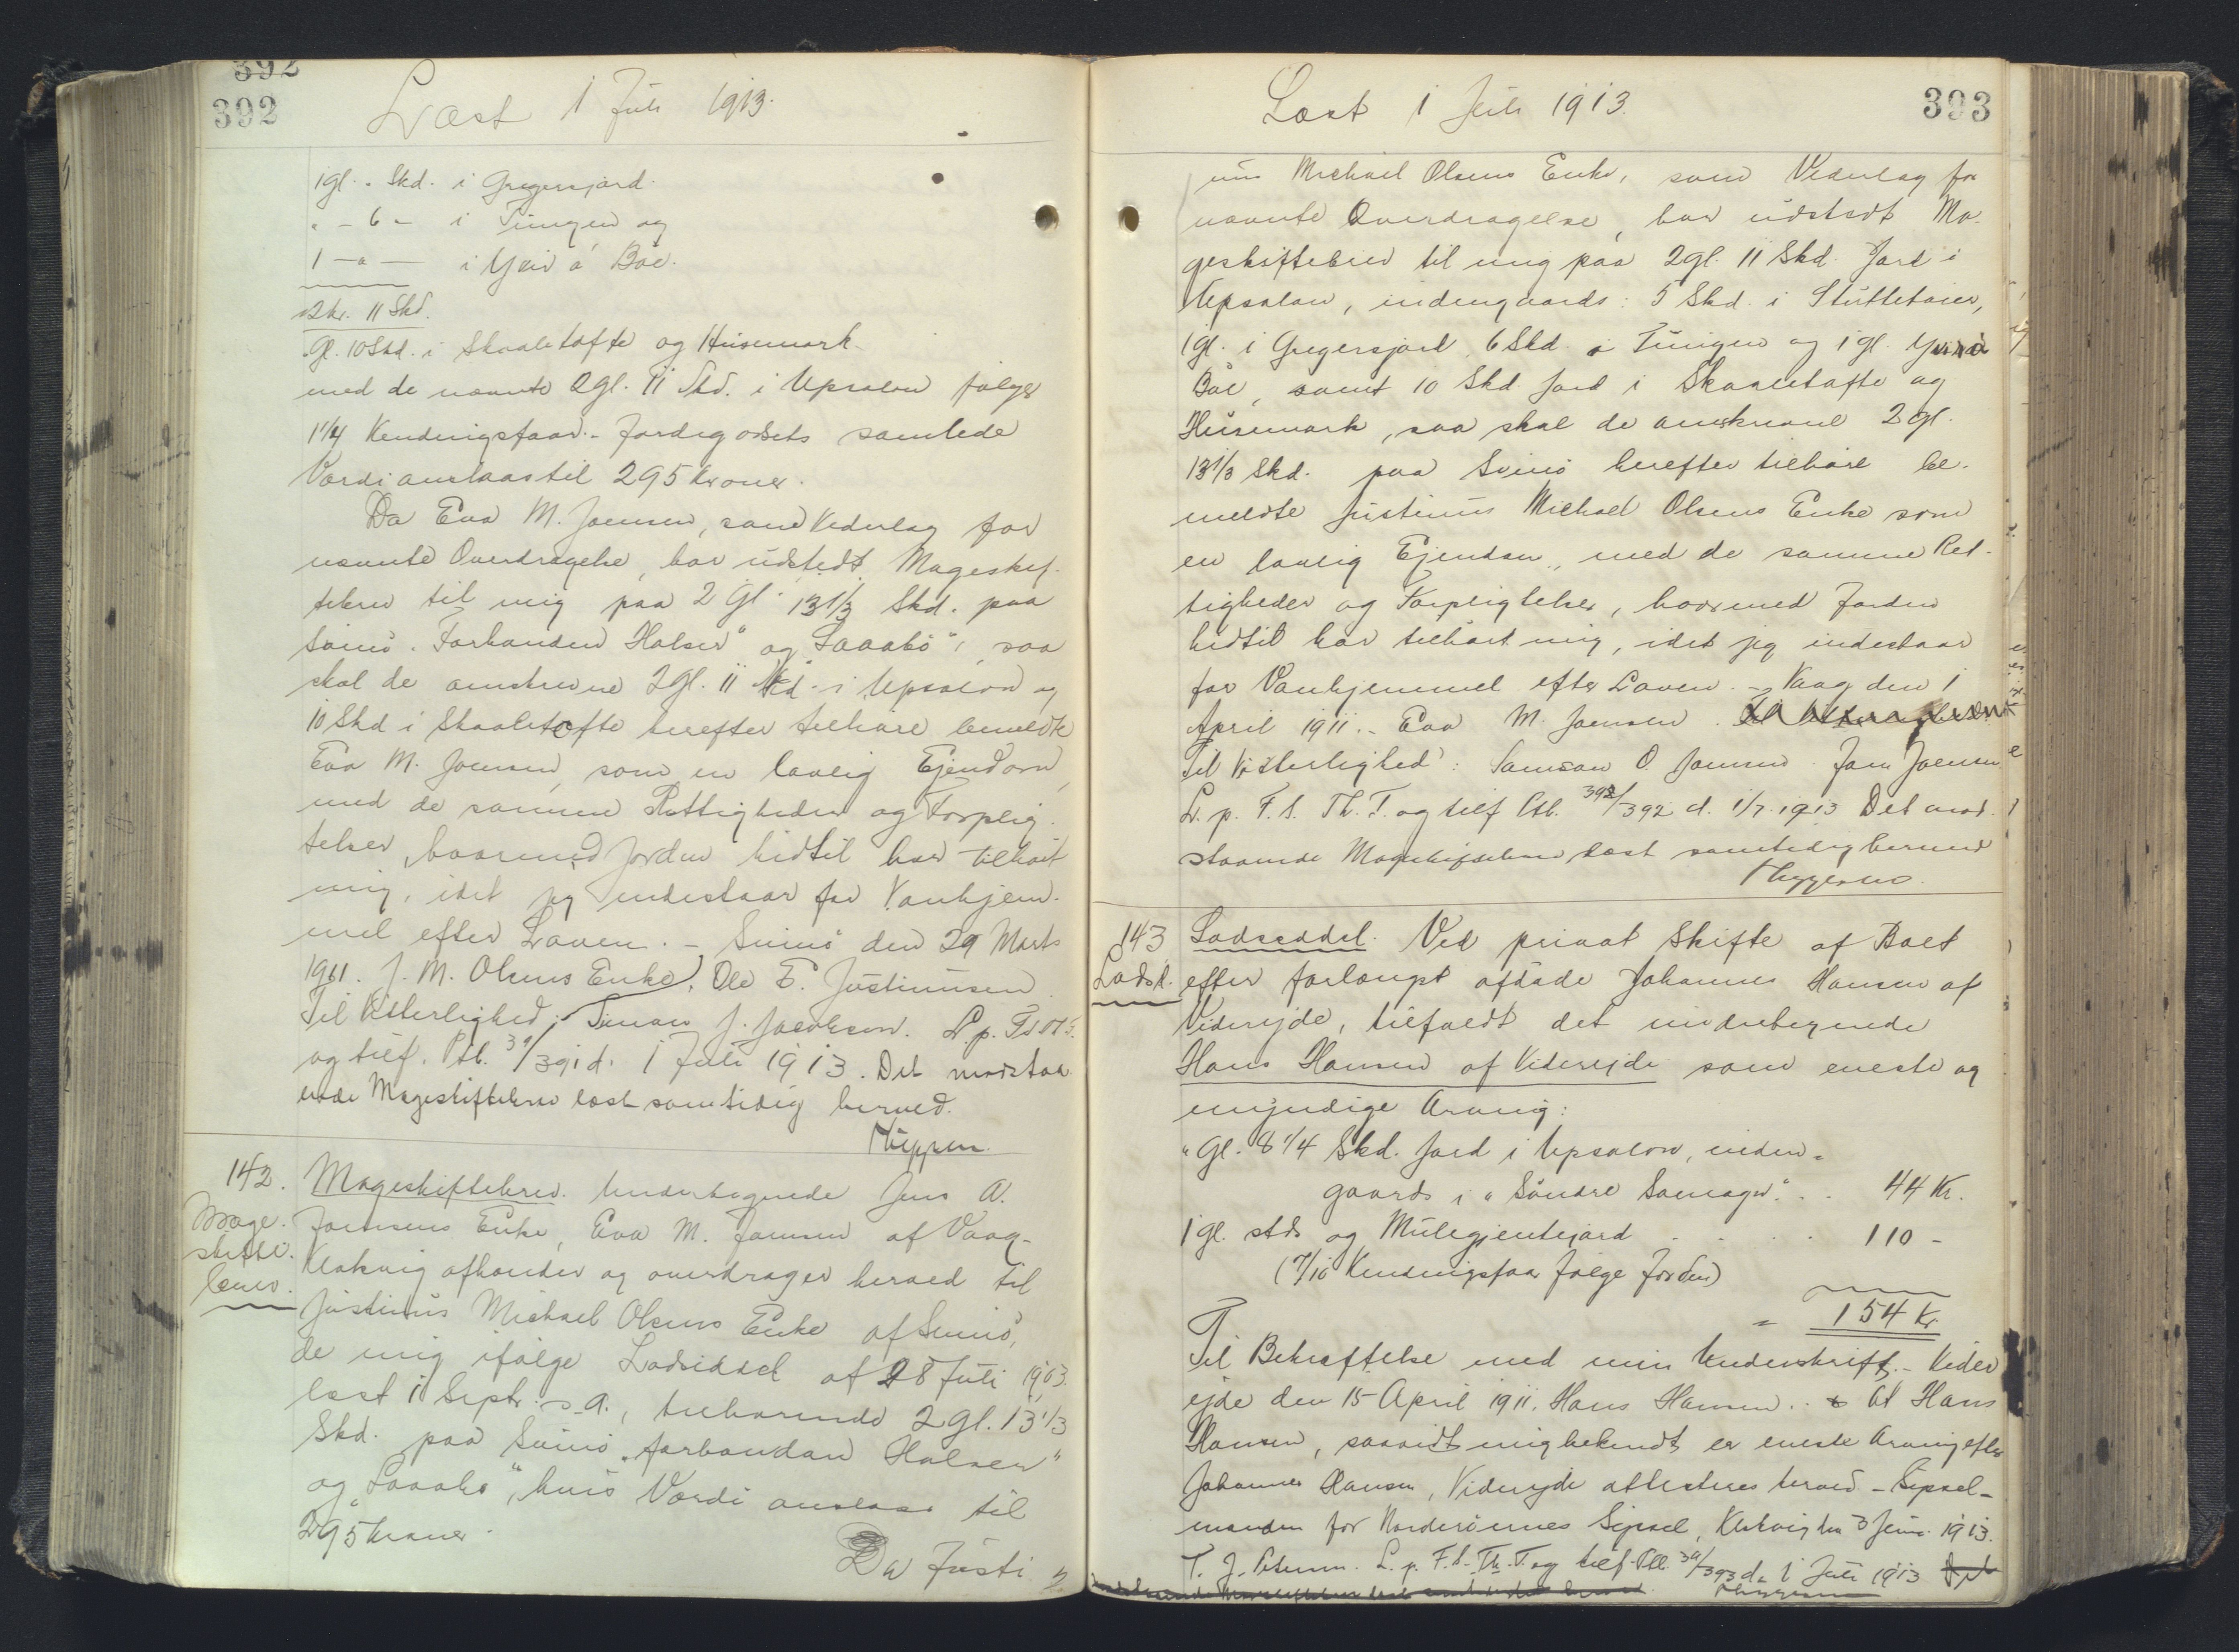 392
392
Læst 1 Juli 1913.
1 gl. „ Skd. i Gregersjord.
„ - 6 - i Tungen og
1 - „ - i Yvir á Böe.
2 gl. 11 Skd.
„ Gl. 10 Skd. i Skaaletofte og Husemark.
med de nævnte 2 gl. 11 Skd. i Upsalen følger
1 1/4 Kendingsfaar. - Jordegodsets samlede
Værdi anslaas til 295 Kroner.
Da Eva M. Joensen, som Vederlag for
nævnte Overdragelse, har udstedt Mageskif-
tebrev til mig paa 2 Gl. 13 1/3 Skd. paa
Svinø. "Forhanden Halsen" og "Laaabø", saa
skal de omskrevne 2 gl. 11 Skd. i Upsalen og
10 Skd i Skaaletofte herefter tilhøre bemeldte
Eva M. Joensen, som en lovlig Ejendom,
med de samme Rettigheder og Forplig-
telser, hvormed Jorden hidtil har tilhørt
mig, idet jeg indestaar for Vanhjem-
mel efter Loven. - Svinø den 29 Marts
1911. J. M. Olsens Enke. Ole F. Justinussen.
Til Vitterlighed: Simon J. Jacobsen. L. p. F. S. Th. T.
og tilf. Ptb. 39/391 d. 1 Juli 1913. Det modstaa-
ende Mageskiftebrev læst samtidig hermed.
142. Mageskiftebrev. Undertegnede Jens A.
Mage- Joensens Enke, Eva M. Joensen af Vaag-
skifte- Klaksvig afhænder og overdrager herved til
brev. Justinus Michael Olsens Enke af Svinø,
de mig ifølge Lodseddel af 28 Juli 1903.
læst 1 Septr. s. A., tilhørende 2 gl. 13 1/3
Skd. paa Svinø "forhandan Halsen"
og "Laaabø", hvis Værdi anslaas til
295 Kroner.
Da Justi-
Læst 1 Juli 1913.
393
nus Michael Olsens Enke, som Vederlag for
nævnte Overdragelse, har udstedt Ma-
geskiftebrev til mig paa 2 gl. 11 Skd. Jord i
Upsalen, indengaards: 5 Skd. i Stuttetoier,
1 gl. i Gregersjord, 6 Skd. i Tungen og 1 gl. Yvir á
Böe, samt 10 Skd. Jord i Skaaletofte og
Husemark, saa skal de omskrevne 2 gl.
13 1/3 Skd. paa Svinø herefter tilhøre be-
meldte Justinus Michael Olsens Enke som
en lovlig Ejendom, med de samme Ret-
tigheder og Forpligtelser, hvormed Jorden
hidtil har tilhørt mig, idet jeg indestaar
for Vanhjemmel efter Loven. - Vaag den 1
April 1911. - Eva M. Joensen.
Til Vitterlighed: Samson O. Joensen. Jens Joensen.
L. p. F. S. Th. T. og tilf Ptb. 392/392 d. 1/7. 1913 Det mod-
staaende Mageskiftebrev læst samtidig hermed
143 Lodseddel. Ved privat Skifte af Boet
Lodsd. efter forlængst afdøde Johannes Hansen af
Viderejde, tilfaldt det undertegnede
Hans Hansen af Viderejde som eneste og
myndige Arving:
„ Gl. 8 1/4 Skd. Jord i Upsalen, inden-
gaards i "Söndre Samagn" . . 44 Kr.
1 gl. stds og Mulegjentejord . . . . 110 -
(7/10 Kendingsfaar følge Jorden)
= 154 Kr.
Til Bekræftelse med min Underskrift. - Vider-
ejde den 15 April 1911. Hans Hansen. - At Hans
Hansen, saavidt mig bekendt, er eneste Arving efter
Johannes Hansen, Viderejde attesteres herved - Syssel-
manden for Norderøernes Syssel, Klaksvig den 3 Juni 1913.
L. p. F. S. Th. T. og tilf. Ptb. 39/393 d. 1 Juli 1913